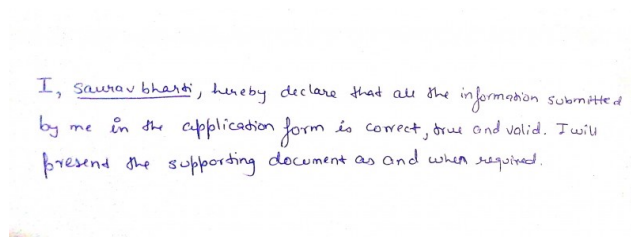 I, Saurav bharti, hereby declare that all the information submitted
by me in the application form is correct, true and valid. I will
present the supporting document as and when required.